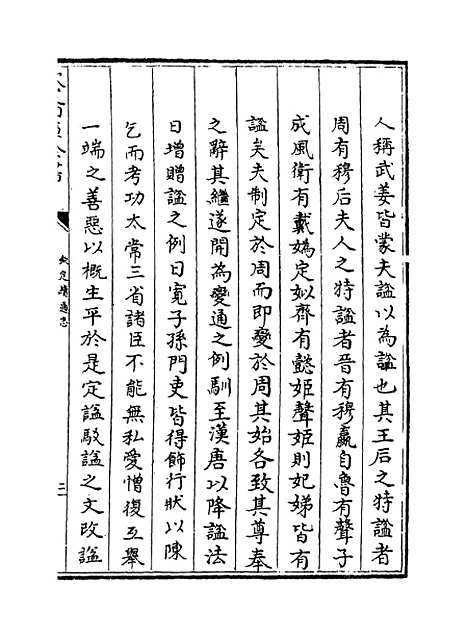 人稱武姜皆蒙夫謚以為謚也其王后之特謚者
周有穆后夫人之特謚者晉有穆嬴自魯有聲子
成風衛有戴媯定姒齊有懿姬聲姬則妃娣皆有
謚矣夫制定於周而即變於周其始各致其尊奉
之辭其繼遂開為變通之例馴至漢唐以降謚法
日增贈謚之例日寛子孫門吏皆得飾行狀以陳
乞而考功太常三省諸臣不能無私愛憎復互舉
一端之善惡以概生平於是定謚駁謚之文改謚
欽定續通志